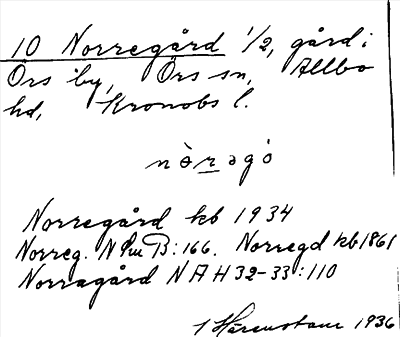 10 Norregård 1/2, gård i
Örs by, Örs sn, Allbo
hd, Kronobs l.
nòrəgó
Norregård kb 1934
Norreg. N SmB:166. Norregd kb 1861
Norragård NAH 32-33:110
1936